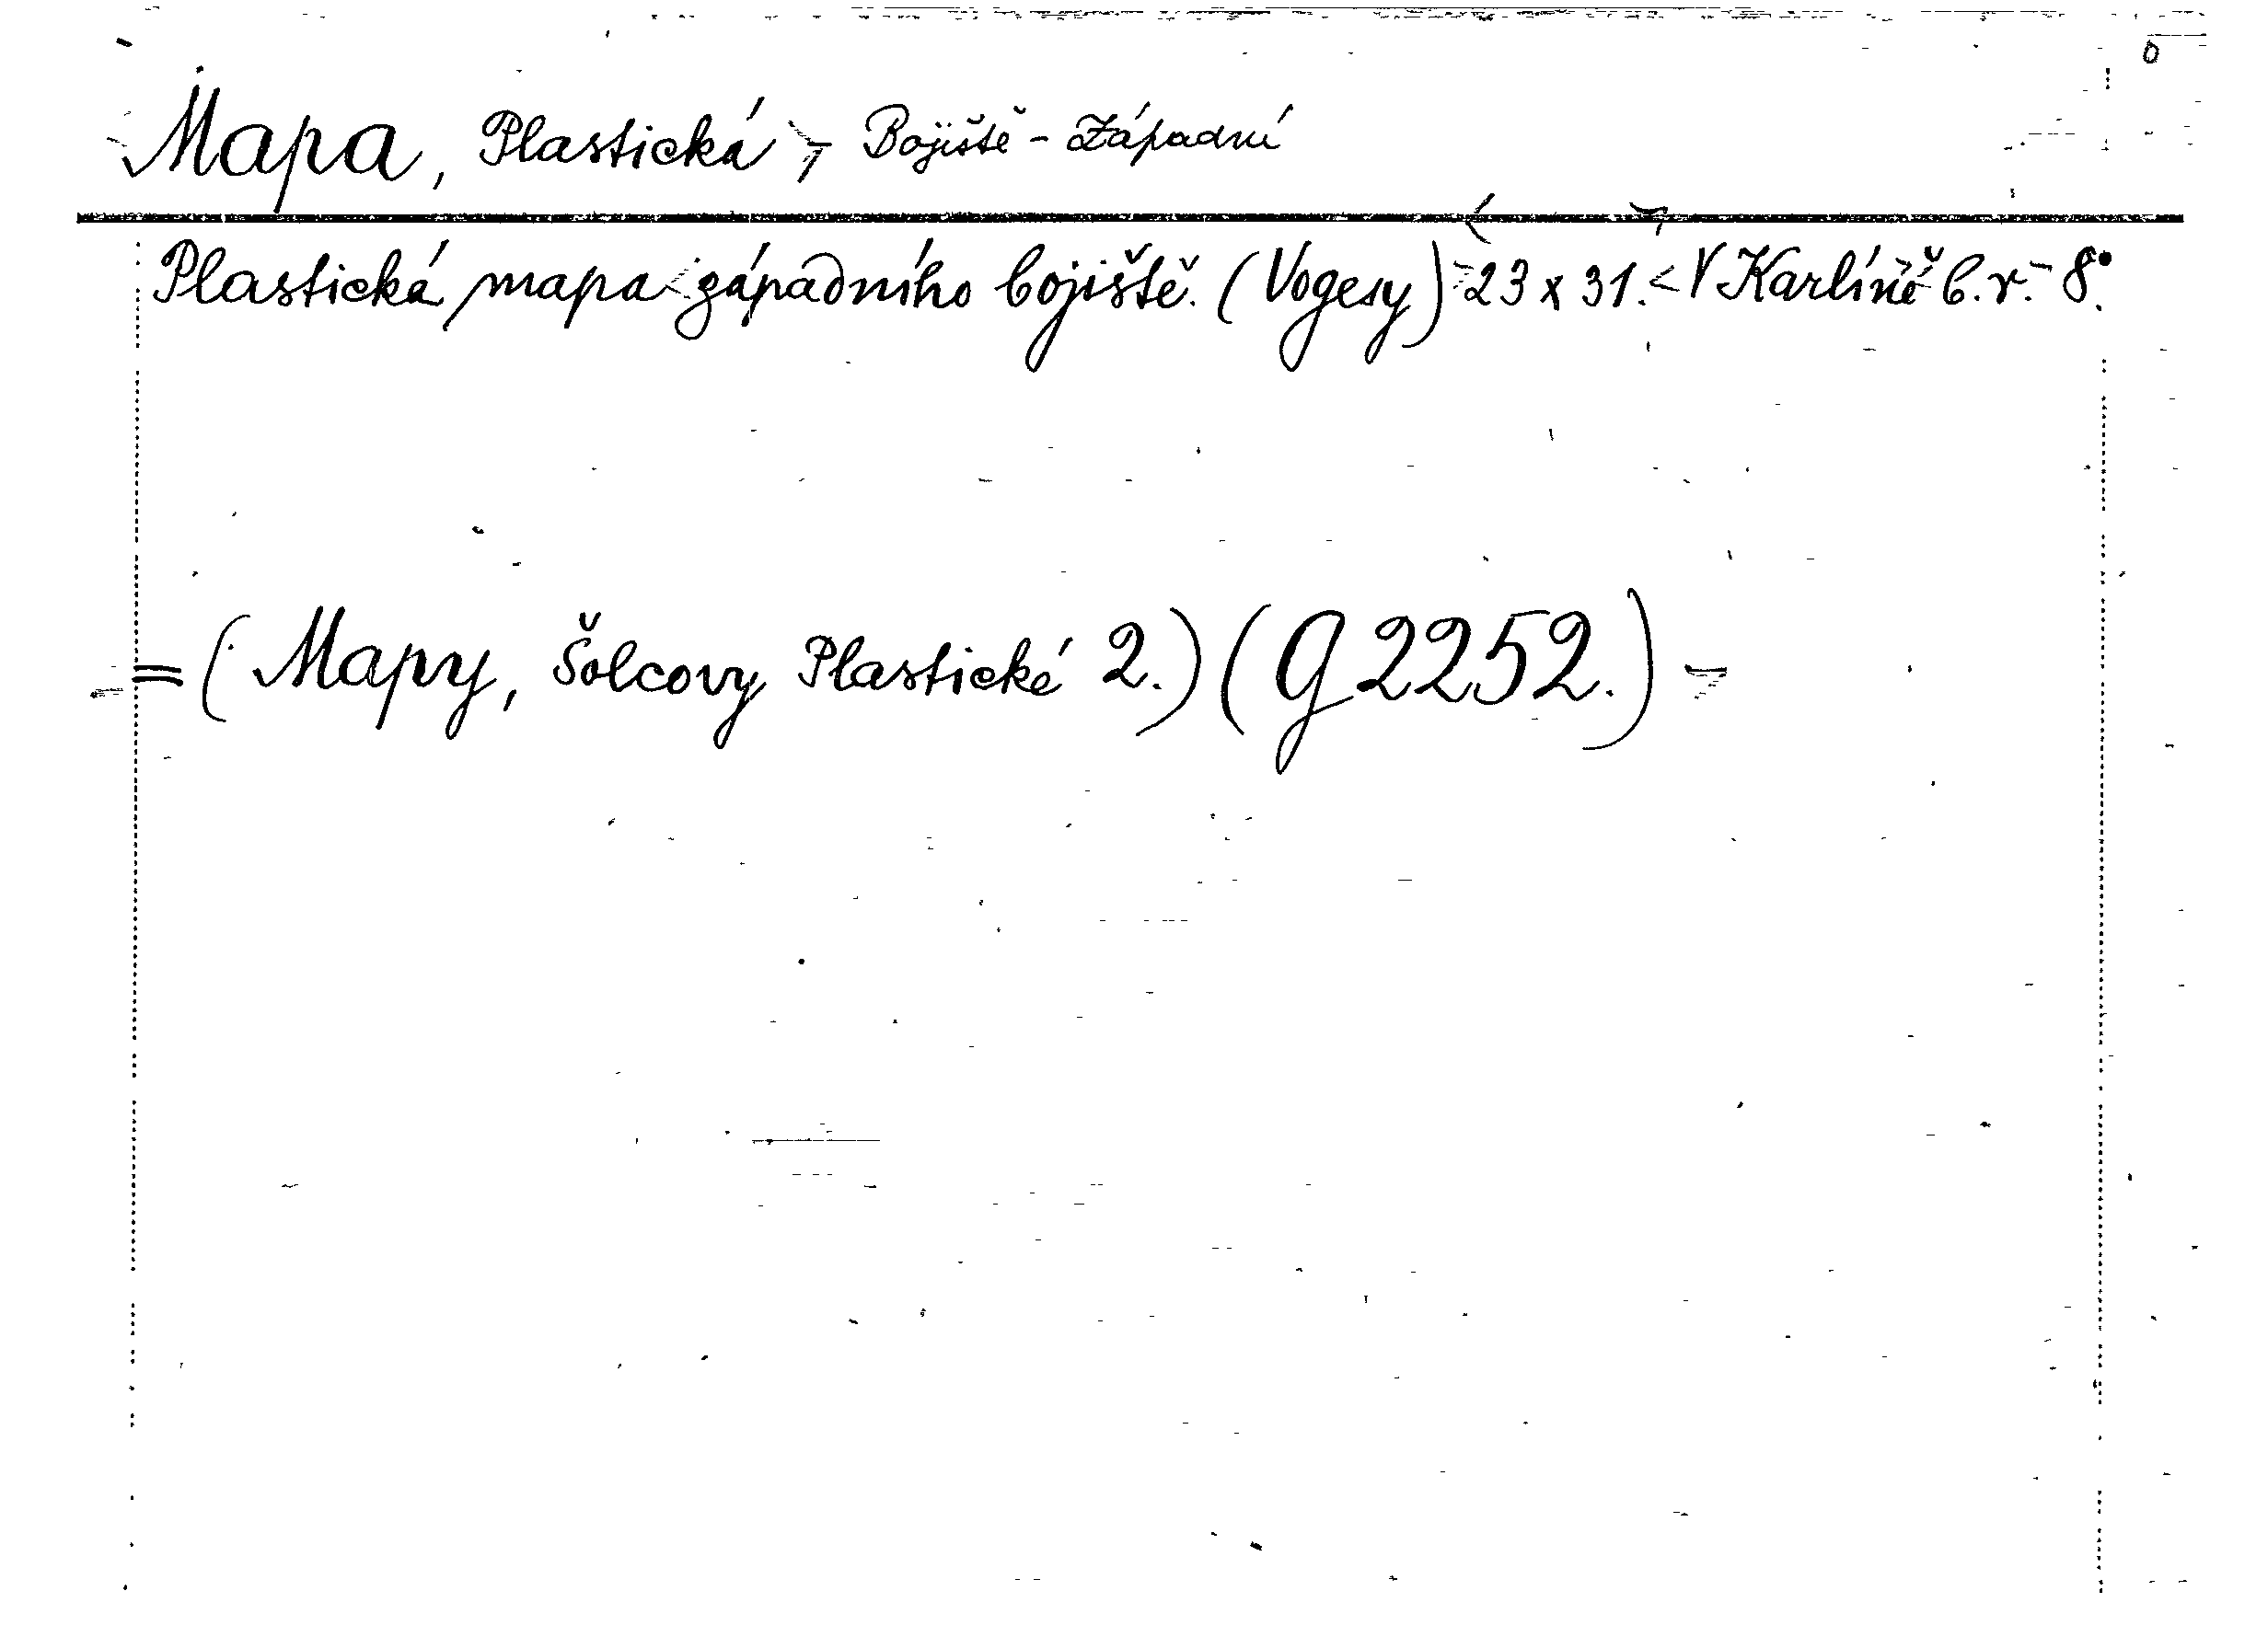 Mapa, Plastická, Bojiště - Západní
Plastická mapa západního bojiště. (Vogesy) 23 x 31. V Karlíně b. r. 8°.
= (Mapy, Šolcovy Plastické 2.) (G 2252.) -